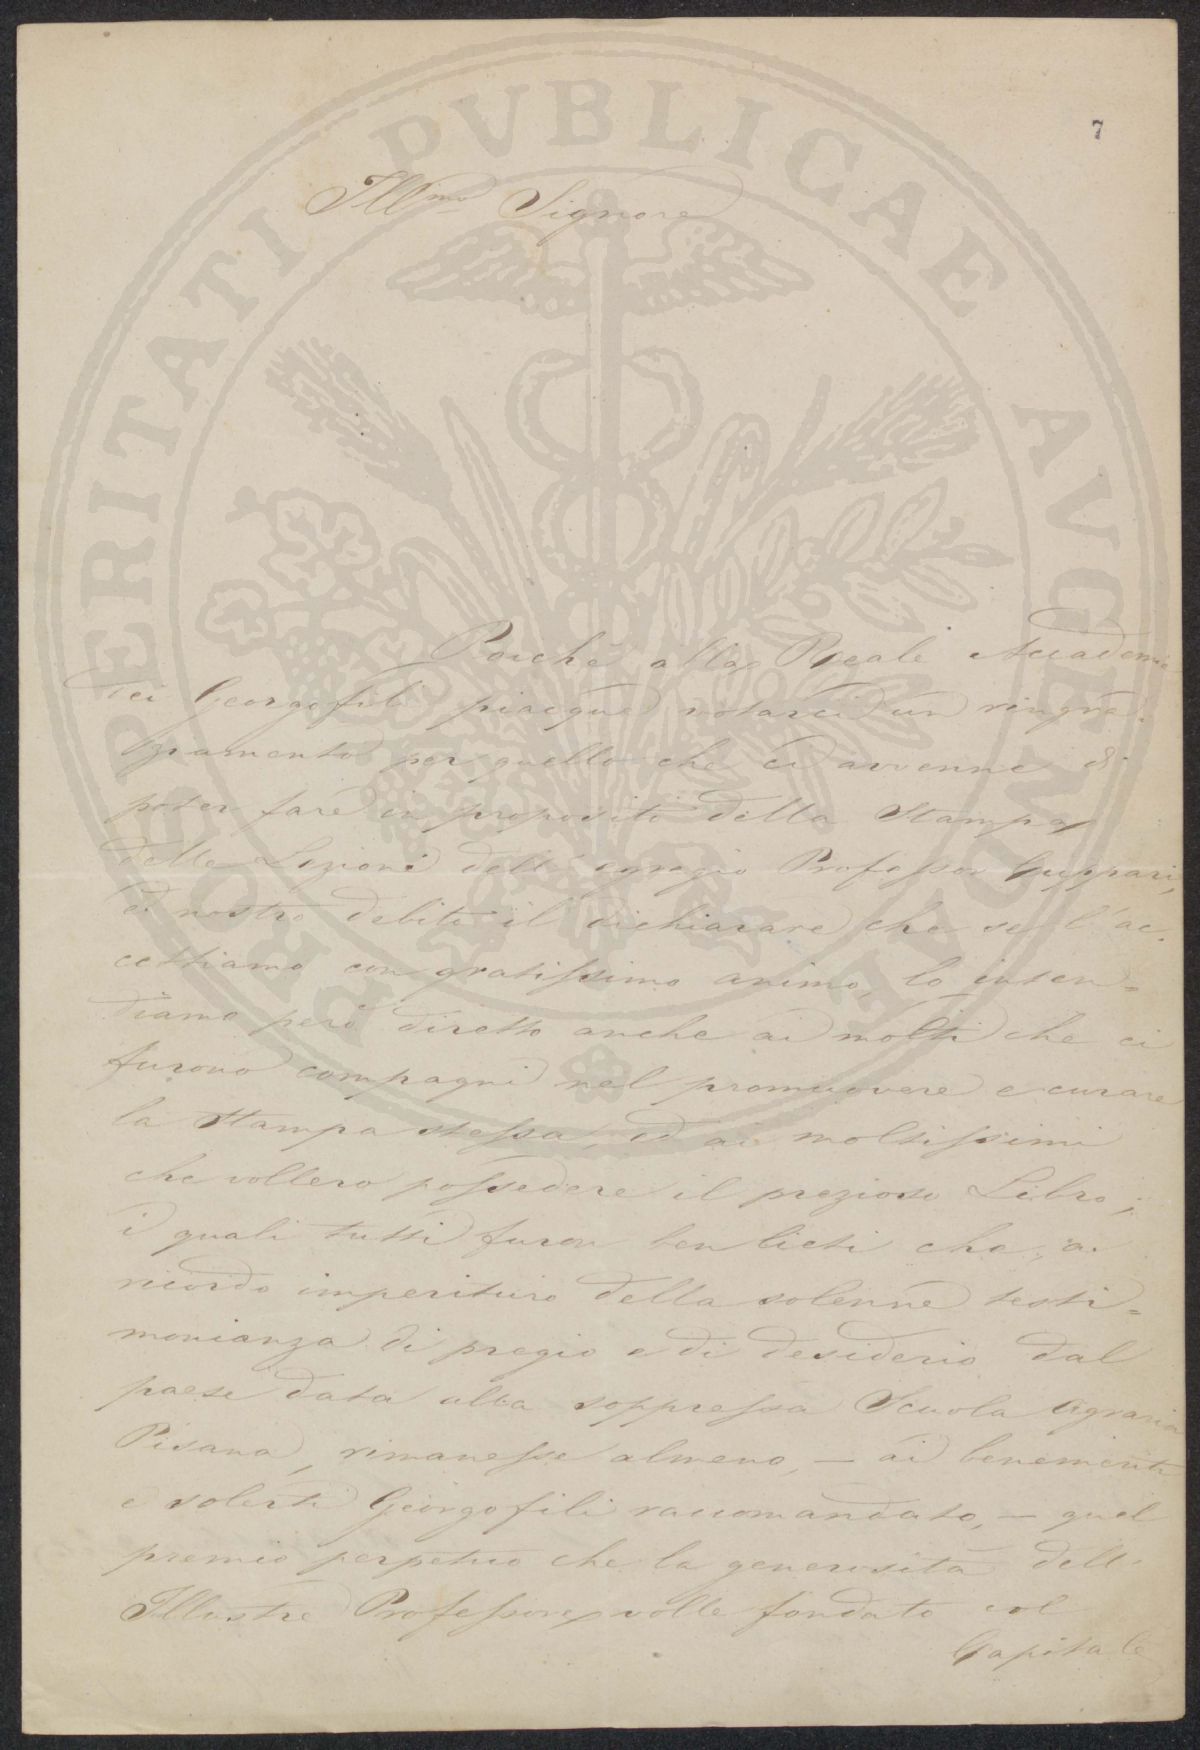 PROSPERITATI PVBLICAE AVGENDAE
7
Ill.mo Signore
Poichè alla Reale Accademia
dei Georgofili piacque votarci un ringra-
ziamento per quello che ci avvenne di
poter fare in proposito della Stampa
delle Lezioni dell' egregio Professor Cuppari,
è nostro debito il dichiarare che se l' ac-
cettiamo con gratissimo animo, lo inten=
diamo però diretto anche ai molti che ci
furono compagni nel promuovere e curare
la Stampa stessa, ed ai moltissimi
che vollero possedere il prezioso Libro;
i quali tutti furon ben lieti che, a
ricordo imperituro della solenne testi=
monianza di pregio e di desiderio dal
paese data alla soppressa Scuola Agraria
Pisana, rimanesse almeno, — ai benemeriti
e solerti Georgofili raccomandato, — quel
premio perpetuo che la generosità dell'
Illustre Professore volle fondato col
Capitale